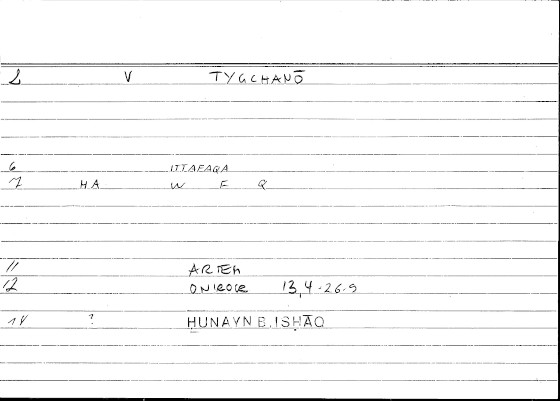 2 V TYGCHANŌ
6 ITTAFAQA
7 HA W F Q
11 ARTEM
12 ONIROCR 13,4-26.9
14 ? ḤUNAYN B. ISḤĀQ